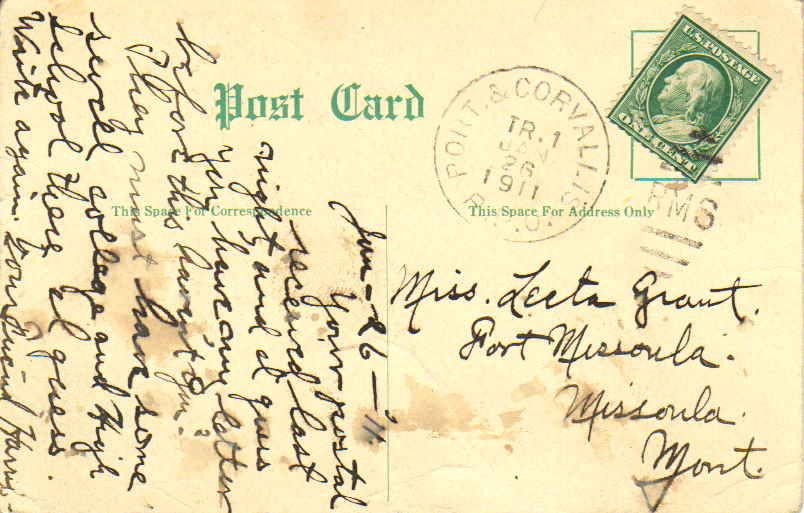 Post Card
PORT. & CORVALLIS
TR. 1
JAN
26
1911
R.P.O.
U.S. POSTAGE
ONE CENT
RMS
This Space For Correspondence
This Space For Address Only
Jan-26-'11
Your postal
received last
night and I guess
you have my letter
before this haven't you.
They must have some
swell college and High
School there I guess.
Write again. Your Friend Harris
Miss. Leeta Grant.
Fort Missoula.
Missoula.
Mont.